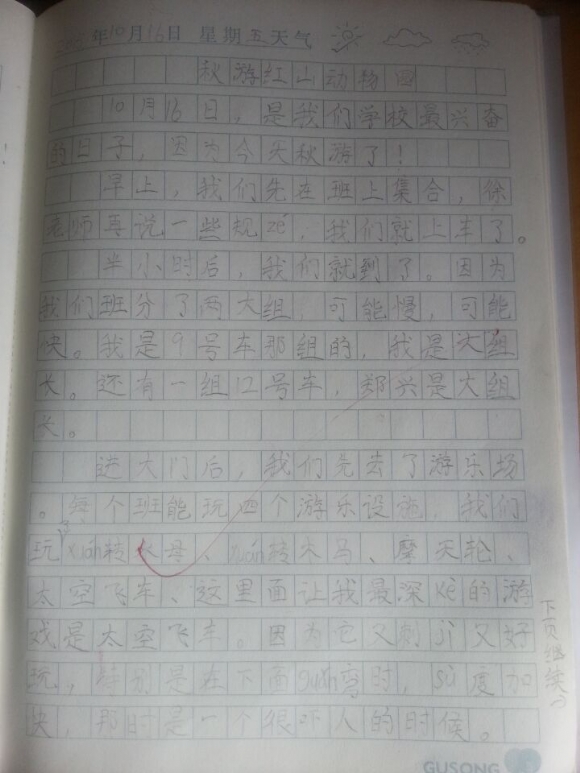 年10月16日 星期五天气
秋游红山动物园
10月16日，是我们学校最兴奋
的日子，因为今天秋游了！
早上，我们先在班上集合，徐
老师再说一些规zé，我们就上车了。
半小时后，我们就到了。因为
我们班分了两大组，可能慢，可能
快。我是9号车那组的，我是大组
长。还有一组12号车，郑兴是大组
长。
进大门后，我们先去了游乐场
。每个班能玩四个游乐设施，我们
玩了xuán转水母、xuán转木马、摩天轮、
太空飞车、这里面让我最深kè的游
戏是太空飞车。因为它又刺jī又好
玩，特别是在下面xuán弯时，sù度加
快，那时是一个很吓人的时候。
下页继续
GUSONG